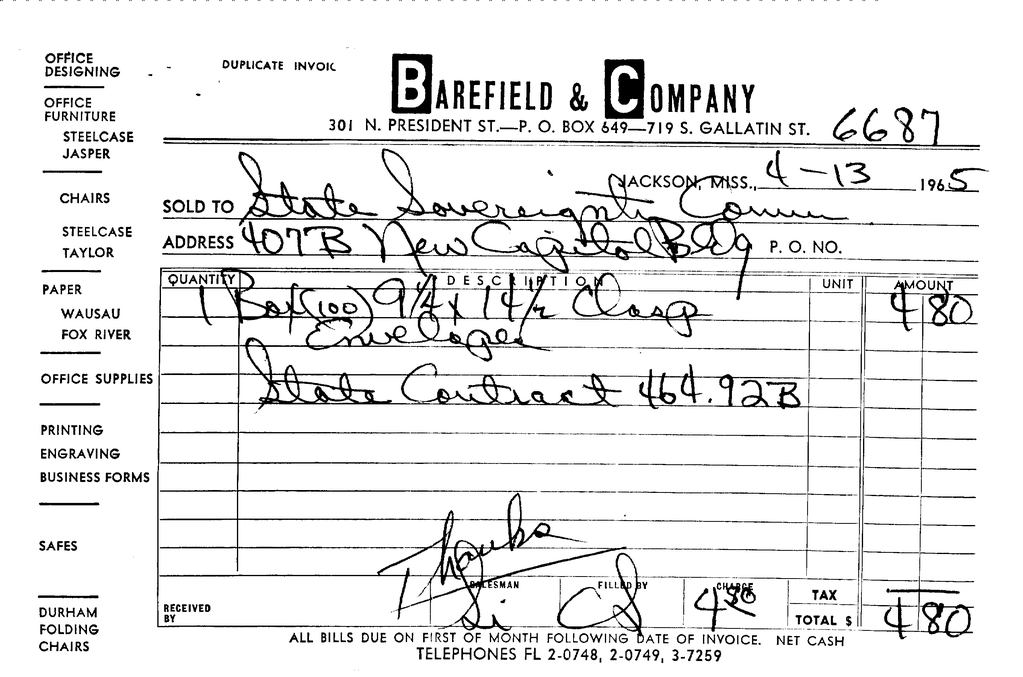 OFFICE
DESIGNING
OFFICE
FURNITURE
STEELCASE
JASPER
CHAIRS
STEELCASE
TAYLOR
PAPER
WAUSAU
FOX RIVER
OFFICE SUPPLIES
PRINTING
ENGRAVING
BUSINESS FORMS
SAFES
DURHAM
FOLDING
CHAIRS
DUPLICATE INVOIC
BAREFIELD & COMPANY
301 N. PRESIDENT ST.—P. O. BOX 649—719 S. GALLATIN ST. 6687
JACKSON, MISS., 4-13 1965
SOLD TO State Sovereignty Comm
ADDRESS 407B New Capitol Bldg P. O. NO.
QUANTITY DESCRIPTION UNIT AMOUNT
1 Box (100) 9 1/4 x 14 1/2 Clasp 4 80
Envelopes
State Contract 464.92B
Thanks
SALESMAN FILLED BY CHARGE TAX
RECEIVED
BY Si CS 4 80 TOTAL $ 4 80
ALL BILLS DUE ON FIRST OF MONTH FOLLOWING DATE OF INVOICE. NET CASH
TELEPHONES FL 2-0748, 2-0749, 3-7259